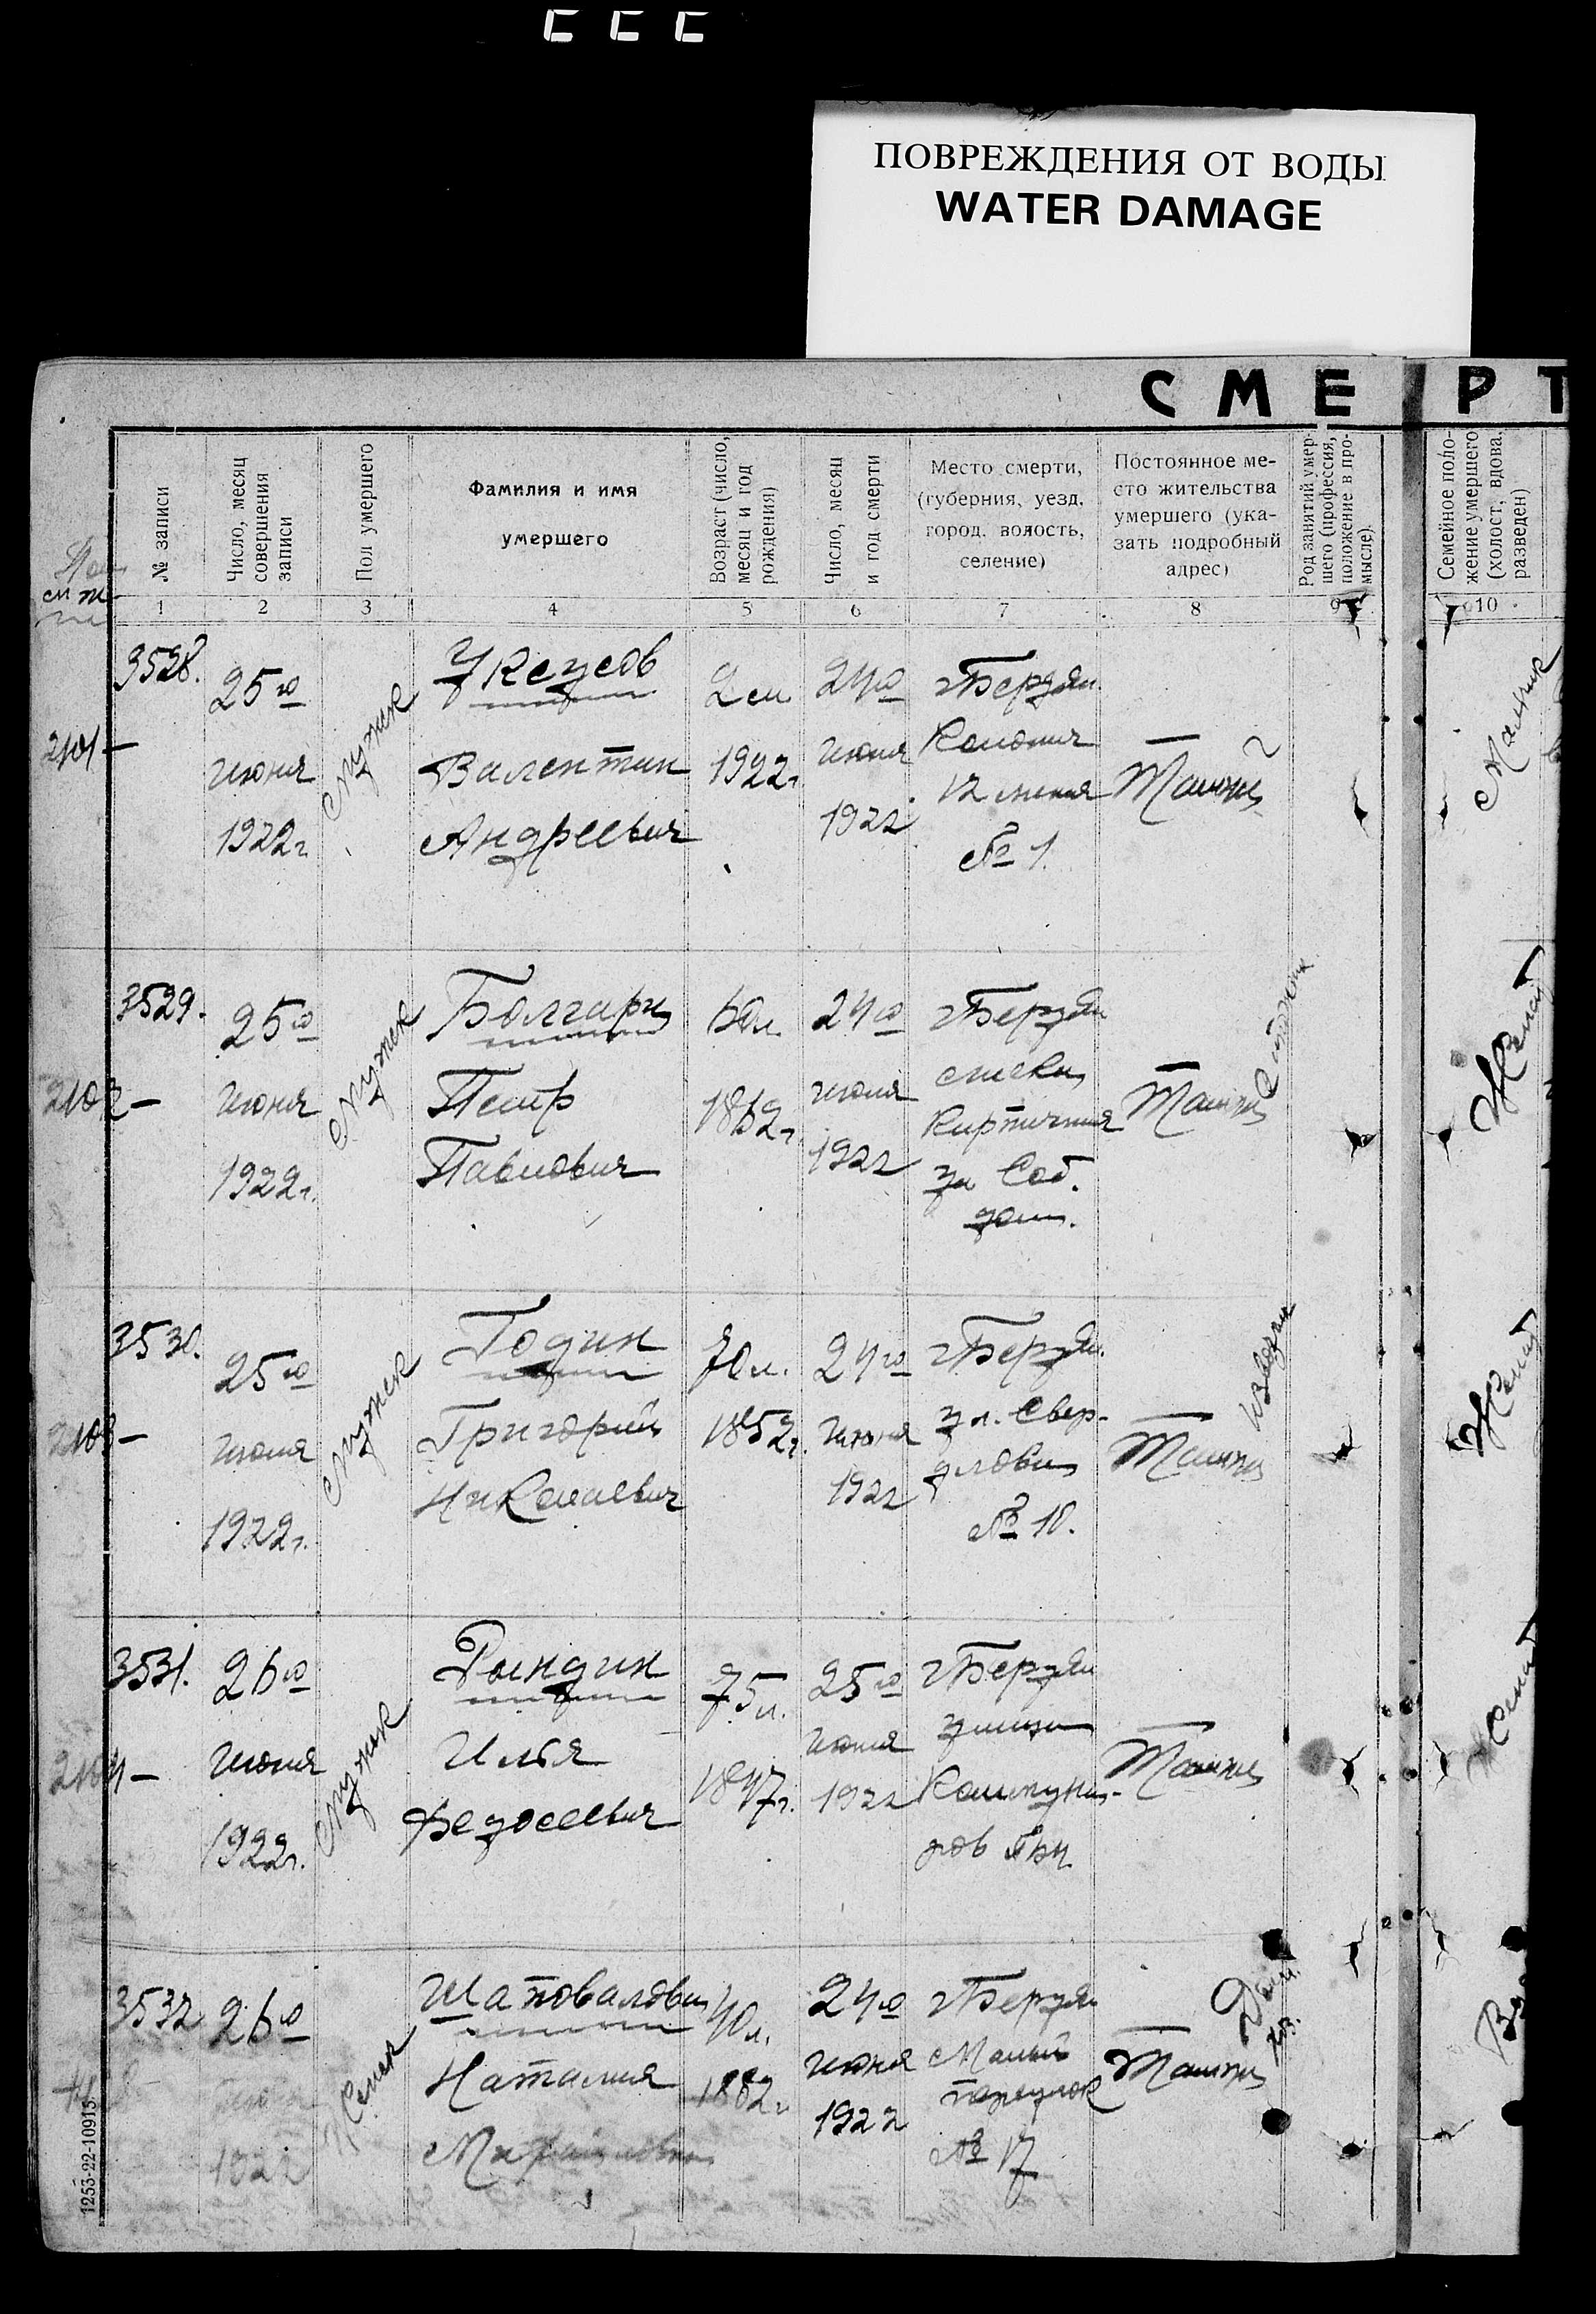 ПОВРЕЖДЕНИЯ ОТ ВОДЫ
WATER DAMAGE
СМЕРТ
№ записи
Число, месяц
совершения
записи
Пол умершего
Фамилия и имя
умершего
Возраст (число,
месяц и год
рождения)
Число, месяц
и год смерти
Место смерти,
(губерния, уезд,
город, волость,
селение)
Постоянное ме-
сто жительства
умершего (ука-
зать подробный
адрес)
Род занятий умер-
шего (профессия,
положение в про-
мысле)
Семейное поло-
жение умершего
(холост, вдова,
разведен)
1 2 3 4 5 6 7 8 9 10
3528.
2101 —
25го
июня
1922г
Мужск
Валентин
Андреевич
1922г
24го
июня
1922
г Бердян
12 линия
№ 1.
Тамже
3529.
2102 —
25го
июня
1922г.
Мужск
Болгарин
Петр
Павлович
60л.
1862г
24го
июня
1922
г Бердян
Тамже
Женат
3530.
2103 —
25го
июня
1922г.
Мужск
Годин
Григорий
Николаевич
70л.
1852г.
24го
июня
1922
г Бердян.
ул. Свер-
длова
№ 10.
Тамже
Женат
3531.
2104 —
26го
июня
1922г.
Мужск
Рындин
Илья
Федосеевич
75л.
1847г.
25го
июня
1922
г Бердян
улица
Коммуна-
ров
Тамже
Женат
3532
26го
1922
Женск
Шаповалова
Наталия
40л.
1882г
24го
июня
1922
г Бердян
Малый
переулок
№ 17
Тамже
Дом.
хоз.
1253-22-10915